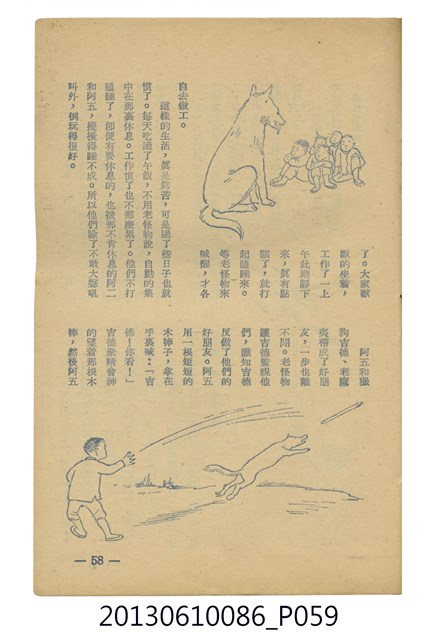 了。大家默
默的坐着，
工作了一上
午此刻靜下
來，眞有點
睏了，就打
起瞌睡來。
等老怪物來
喊醒，才各
自去做工。
這樣的生活，眞是夠苦，可是過了些日子也就
慣了。每天吃過了午飯，不用老怪物說，自動的集
中在那裏休息。工作慣了也不那麼累了。他們不打
瞌睡了，卽便有要休息的，也被那不肯休息的阿二
和阿五，攪擾得睡不成。所以他們除了不敢大聲吼
叫外，倒玩得很好。
阿五和獵
狗吉德、老鷹
夷蒂成了好朋
友，一步也離
不開。老怪物
讓吉德監視他
們，誰知吉德
反做了他們的
好朋友。阿五
用一根短短的
木棒子，拿在
手裏喊：「吉
德！你看！」
吉德聚精會神
的望着那根木
棒，然後阿五
— 58 —
20130610086_P059